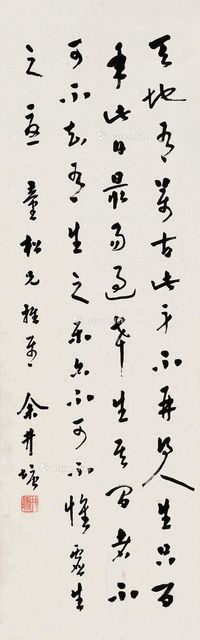 天地有萬古此身不再得人生只百
年此日最易過幸生其間者不
可不知有生之樂亦不可不懷虛生
之憂 松兄雅屬 余井塘